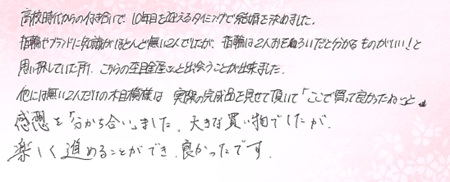 高校時代からの付き合いで、10年目を迎えるタイミングで結婚を決めました。
指輪やブランドに知識がほとんど無い2人でしたが、指輪は2人おそろいだと分かるものがいい！と
思い探していた所、こちらの杢目金屋さんと出会うことが出来ました。
他には無い2人だけの木目模様は 実際の完成品を見せて頂いて「ここで買って良かったね」と
感想を「分かち合い」ました。大きな買い物でしたが、
楽しく進めることができ、良かったです。